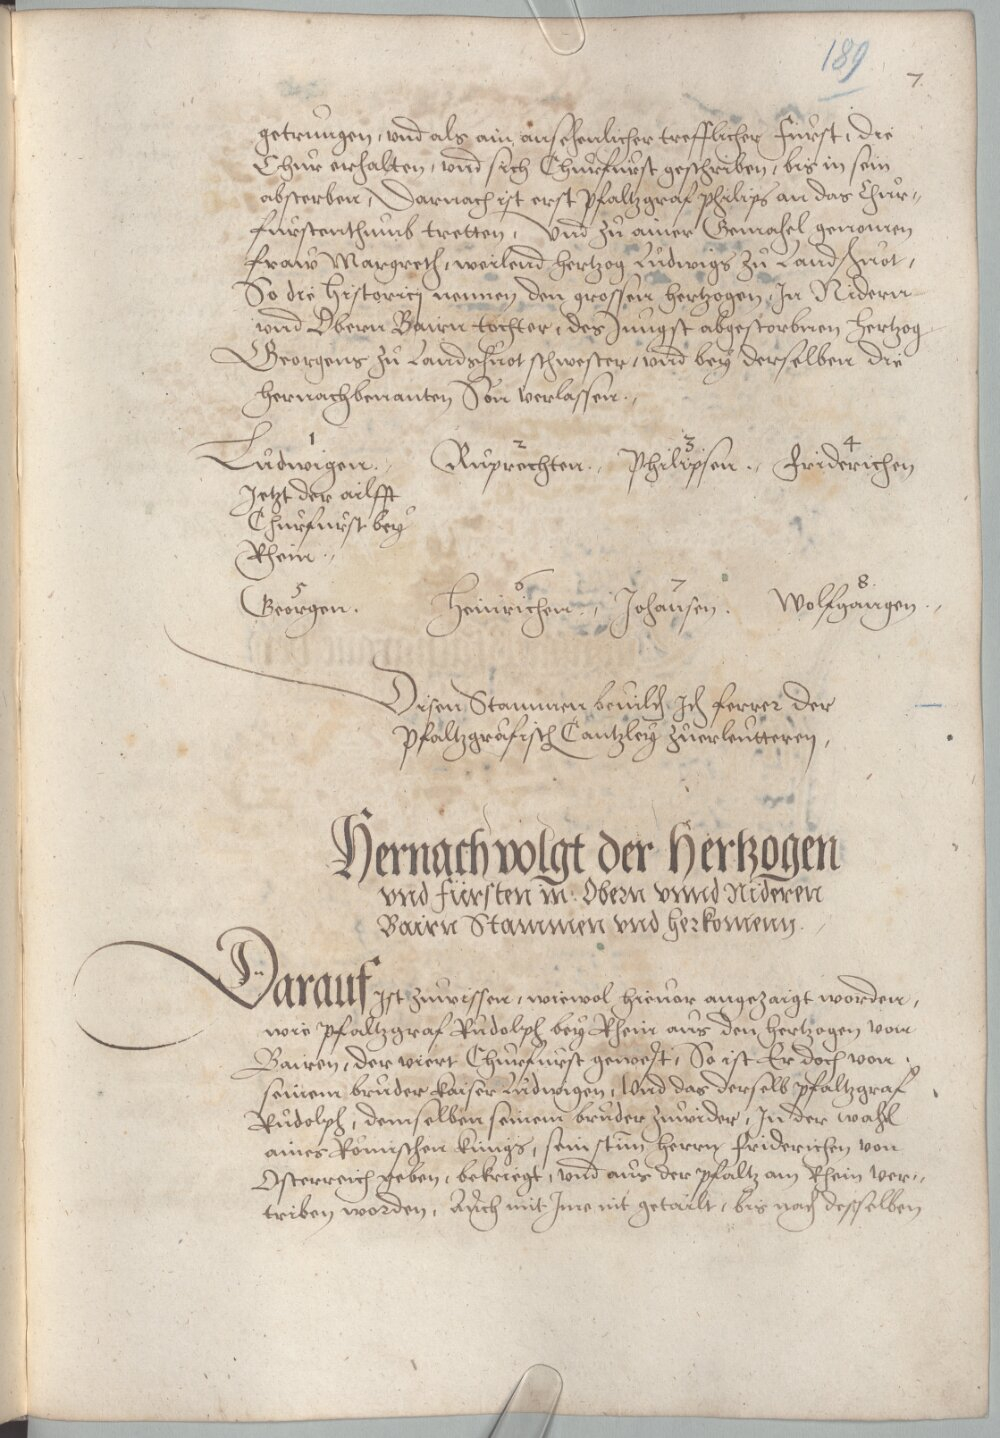 189
7
getrungen, und als ain ansehenlicher trefflicher Fürst, die
Chur erhalten, und sich Churfürst geschriben, bis in sein
absterben, Darnach ist erst Pfaltzgraf Philips an das Chur-,
fürstenthumb tretten, Und zu ainer Gemahel genomen
fraw Margreth, weilend hertzog Ludwigs zu Landshuot,
So die historici nennen den grossen hertzogen, In Nidern
und Obern Bairn tochter, des Jungst abgestorbnen hertzog
Georgens zu Landshuot schwester, und bey derselben die
hernachbenanten Sön verlassen.,
1 2 3 4
Ludwigen., Ruprechten., Philipsen., Friderichen
Jetzt der ailfft
Churfurst bey
Rhein.,
5 6 7 8
Georgen. Heinrichen., Johansen. Wolfgangen.,
Disen Stammen bevilch Ich ferrer der
Pfaltzgräfisch Cantzley zuerleutteren,
Hernach volgt der Hertzogen
und Fürsten in Obern unnd Nideren
Bairn Stammen und herkomenn.,
Darauf Ist zuwissen, wiewol hievor angezaigt worden,
wie Pfaltzgraf Rudolph bey Rhein aus den hertzogen von
Bairen, der viert Churfürst gewest, So ist Er doch von
seinem bruder kaiser Ludwigen, Und das derselb Pfaltzgraf
Rudolph, demselben seinem bruder zuwider, In der wahl
aines Römischen künigs, sein stim herrn Friderichen von
Osterreich geben, bekriegt, und aus der Pfaltz am Rhein ver-,
triben worden, Auch mit Ime nit getailt, bis nach desselben